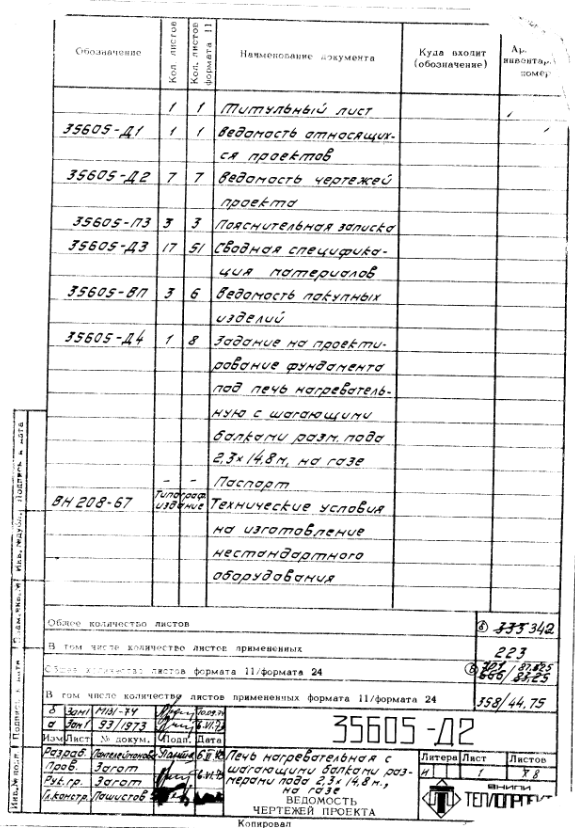 Обозначение
Кол. листов
Кол. листов формата 11
Наименование документа
Куда входит
(обозначение)
1 1 Титульный лист
35605-Д1 1 1 Ведомость относящих-
ся проектов
35605-Д2 7 7 Ведомость чертежей
проекта
35605-ПЗ 3 3 Пояснительная записка
35605-Д3 17 51 Сводная специфика-
ция материалов
35605-ВП 3 6 Ведомость покупных
изделий
35605-Д4 1 8 Задание на проекти-
рование фундамента
под печь нагреватель-
ную с шагающими
балками разм. пода
2,3×14,8м, на газе
- - Паспорт
ВН 208-67 Типограф. издание Технические условия
на изготовление
нестандартного
оборудования
Общее количество листов 342
В том числе количество листов примененных 223
листов формата 11/формата 24
В том числе количество листов примененных формата 11/формата 24 358/44.75
б Зам1 М131-74
а Зам1 93/1973
Изм Лист № докум. Подп. Дата
35605-Д2
Разраб.
Пров. Загот
Рук.гр. Загот
Гл.констр. Пашистов
Печь нагревательная с
шагающими балками раз-
мерами пода 2,3×14,8м.,
на газе
ВЕДОМОСТЬ
ЧЕРТЕЖЕЙ ПРОЕКТА
Литера Лист Листов
И 1 8
ВНИПИ
ТЕПЛОПРОЕКТ
Копировал